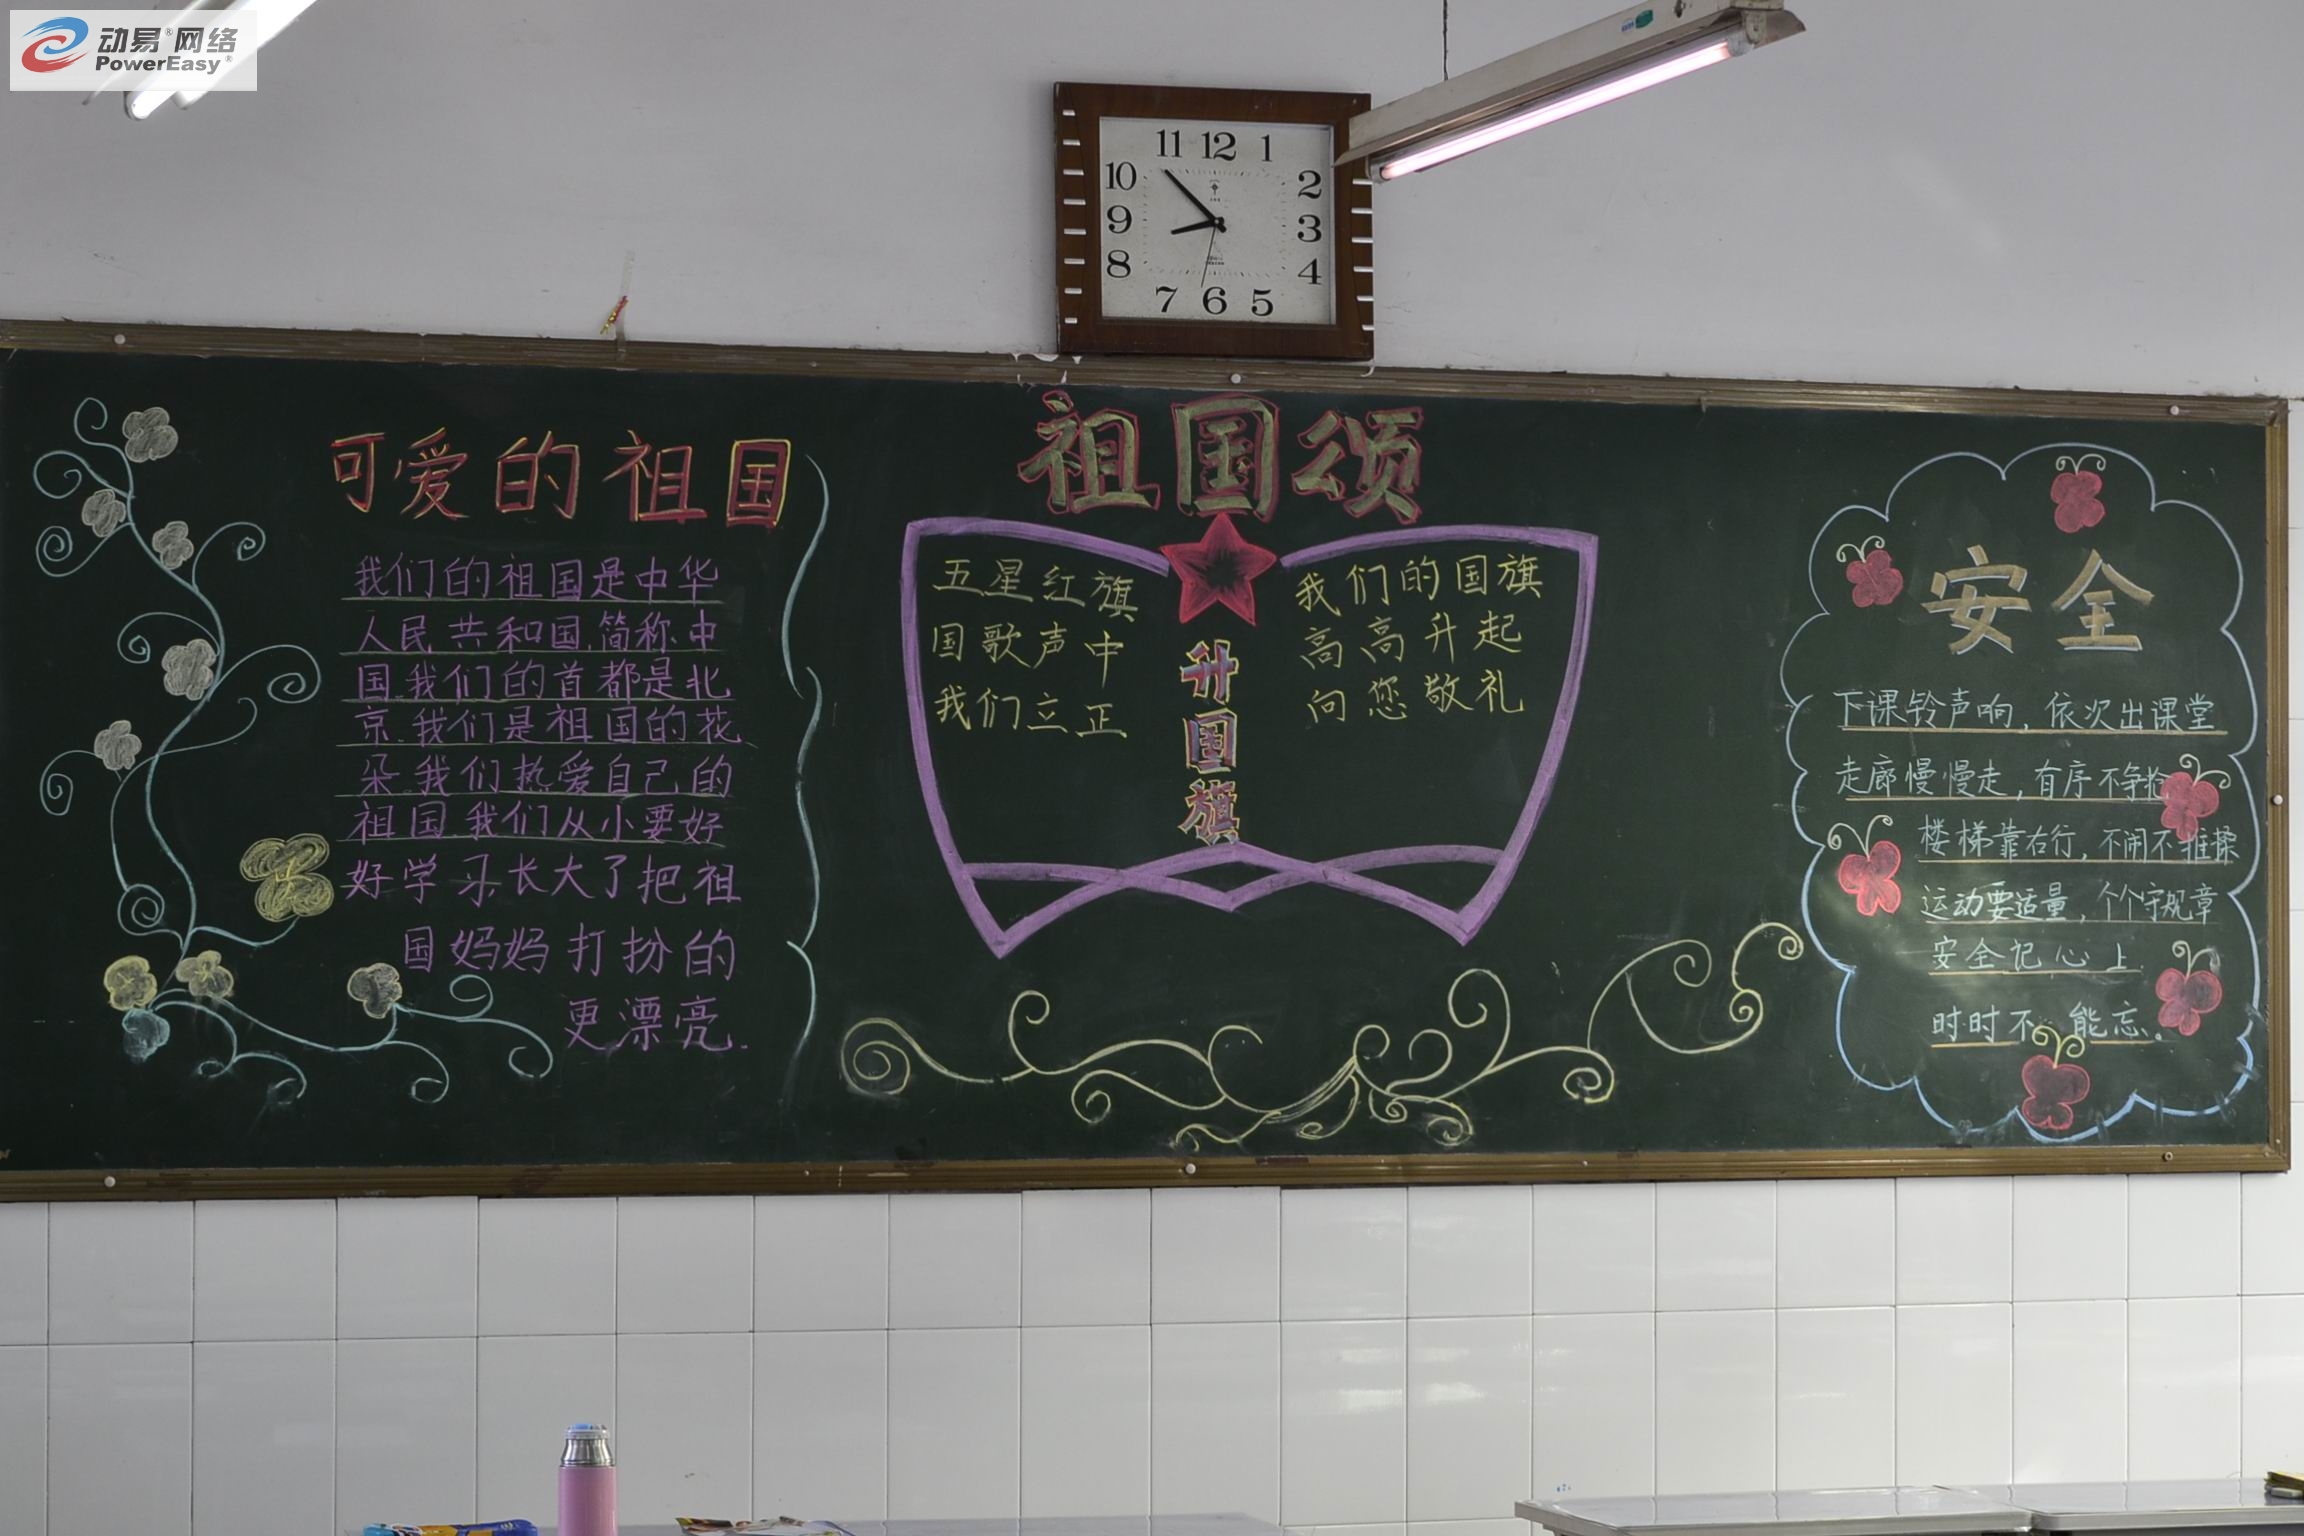 动易®网络
PowerEasy®
11 12 1
10 2
9 3
8 4
7 6 5
可爱的祖国
我们的祖国是中华
人民共和国,简称中
国.我们的首都是北
京.我们是祖国的花
朵.我们热爱自己的
祖国.我们从小要好
好学习,长大了把祖
国妈妈打扮的
更漂亮.
祖国颂
五星红旗
国歌声中
我们立正
升国旗
我们的国旗
高高升起
向您敬礼
安全
下课铃声响,依次出课堂
走廊慢慢走,有序不争抢
楼梯靠右行,不闹不推揉
运动要适量,个个守规章
安全记心上.
时时不能忘。